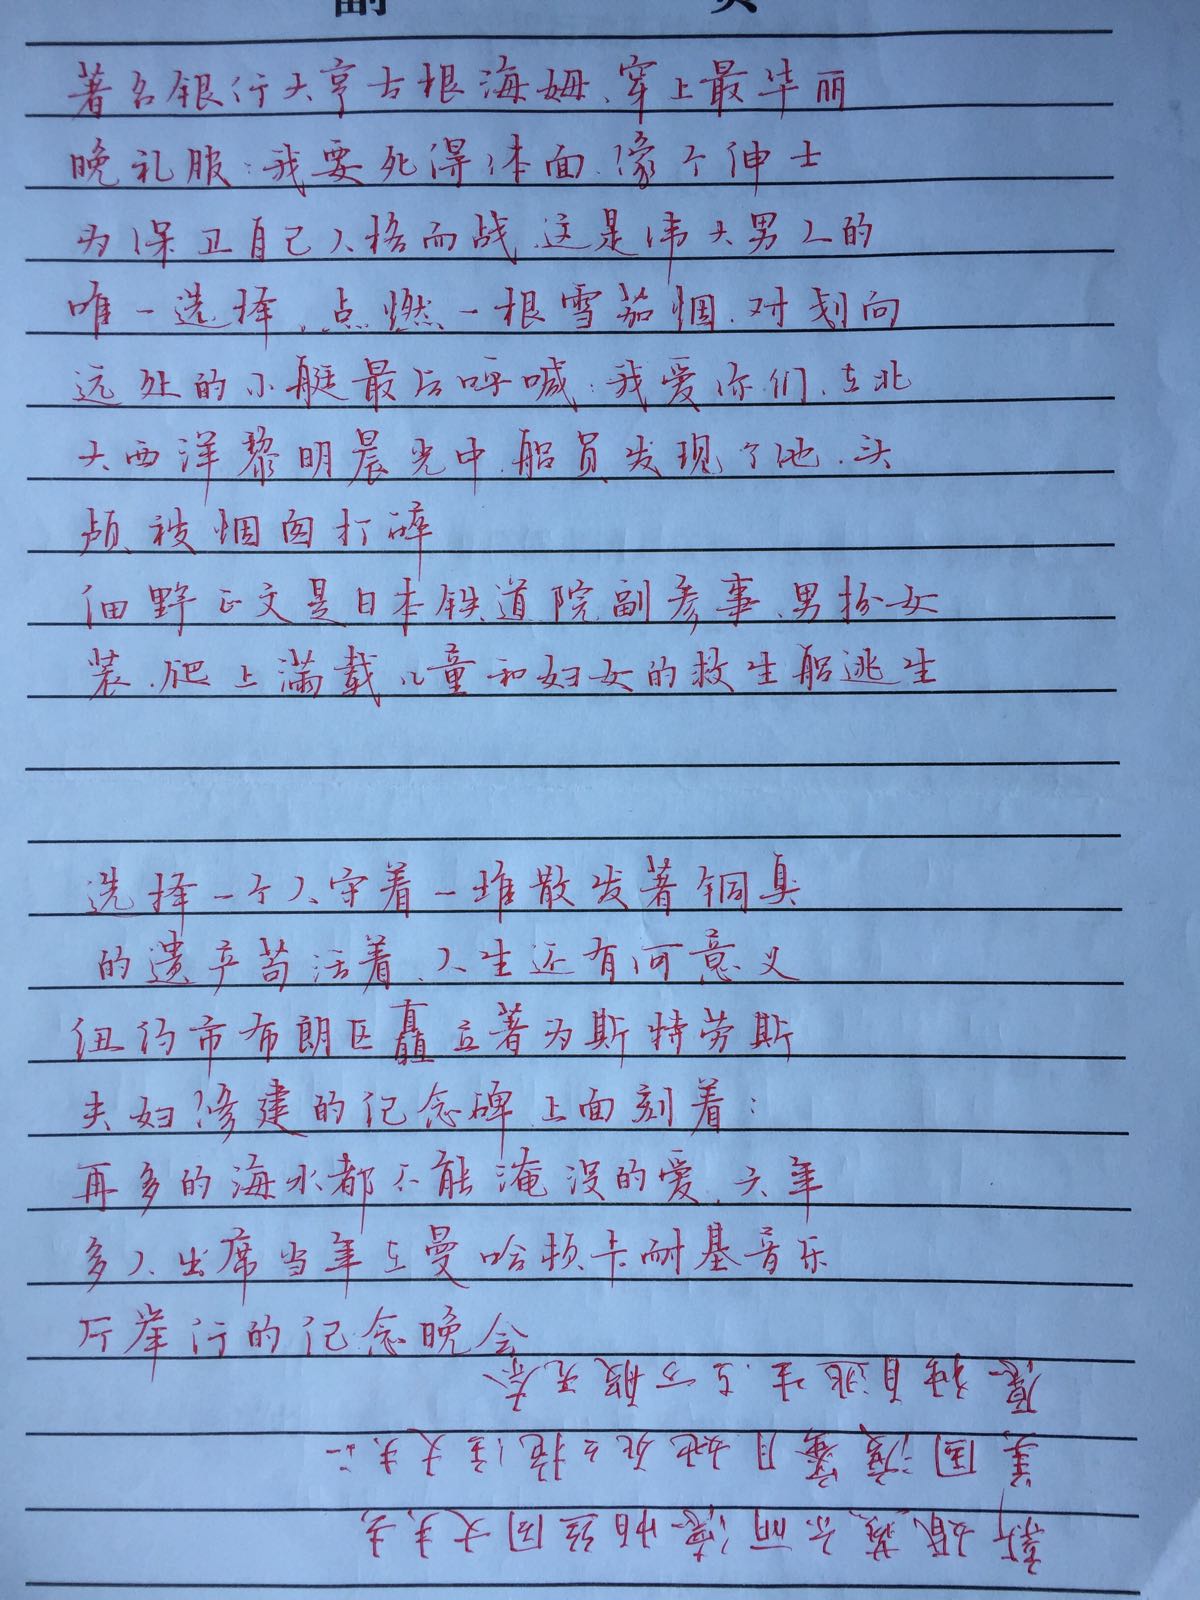 副 页
著名银行大亨古根海姆、穿上最华丽
晚礼服:我要死得体面、像个绅士
为保卫自己人格而战、这是伟大男人的
唯一选择、点燃一根雪茄烟、对划向
远处的小艇最后呼喊:我爱你们、在北
大西洋黎明晨光中、船员发现了他、头
颅被烟囱打碎
细野正文是日本铁道院副参事、男扮女
装、爬上满载儿童和妇女的救生船逃生
选择一个人守着一堆散发著铜臭
的遗产苟活着、人生还有何意义
纽约市布朗区矗立著为斯特劳斯
夫妇修建的记念碑上面刻着:
再多的海水都不能淹没的爱、六年
多人出席当年在曼哈顿卡耐基音乐
厅举行的记念晚会
新娘黄尔丽漫帕丝同丈夫去
美国渡蜜月她死去抱住丈夫不
愿独自逃生、在万般无奈